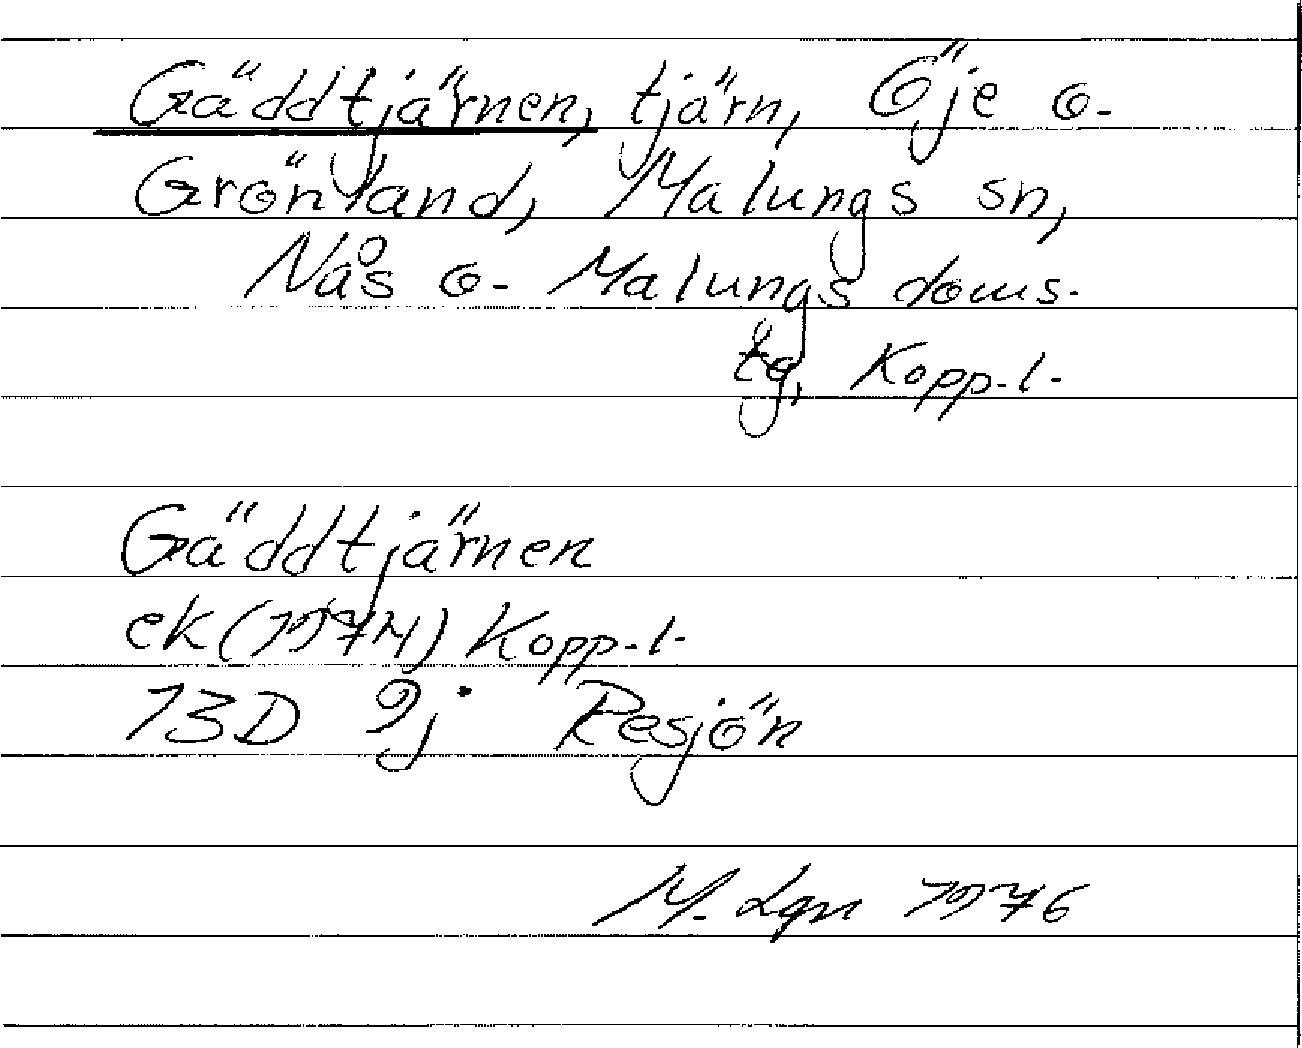 Gäddtjärnen, tjärn, Öje o.
Grönland, Malungs sn,
Nås o. Malungs doms.
tg, Kopp. l.
Gäddtjärnen
ek (1974) Kopp. l.
13D 9j Resjön
M. Lgn 1976